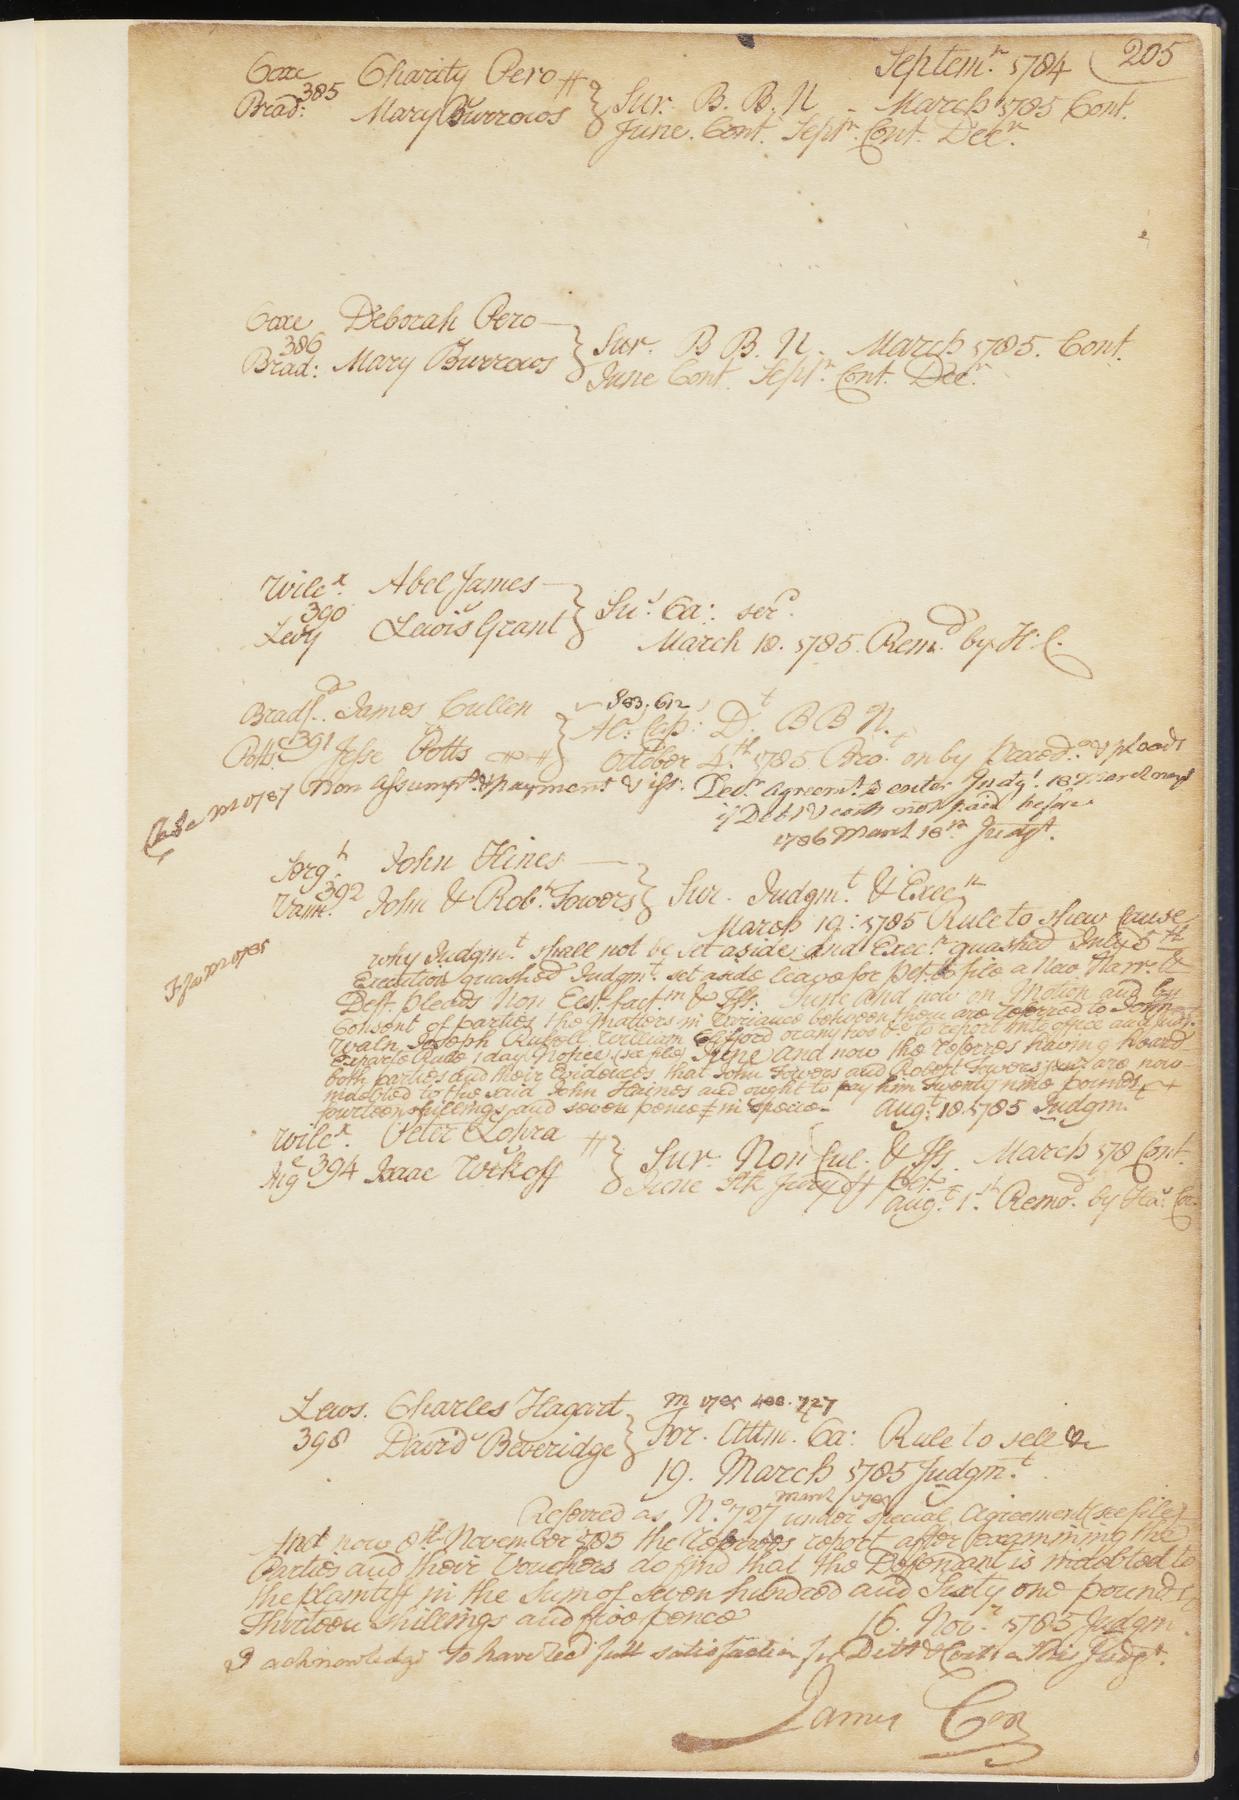 Septem.r 1784 205
Coxe Charity Pero
385
Brad: Mary Burrows } Sur. B. B. N. March 1785 Cont.
June. Cont. Sept.r Cont. Dec.r
Coxe Deborah Pero
386
Brad: Mary Burrows } Sur. B B. N. March 1785. Cont.
June Cont. Sept.r Cont. Dec.r
Wilc.x Abel James
390
Levy Lewis Grant } Su.s Ca: ser.d
March 18. 1785. Rem.d by H. C.
Bradf.d James Cullen 583. 612
Potts 391 Jesse Potts } Al.s Cap: D.t B B N.
October 4.th 1785 Bro.t on by preced.o & pleads
Non Assumps.t & payment & iss: Dec.r agreem.t to enter Judg.t 18 March next
if Debt & costs not paid before
Case m 0787
1786 March 18.th Judg.t.
Serg.t John Hines
392
Vann: John & Rob.t Towers } Sur. Judgm.t & Exec.n
March 19: 1785 Rule to shew Cause
why Judgm.t shall not be set aside and Exec.n quashed July 5.th
Execution quashed Judgm.t set aside leave for Pet. to file a New Narr. &
Deft. pleads Non Est. fact.m & Iss: June and now on Motion and by
Consent of parties the matters in Variance between them are referred to John
Waln, Joseph Russell, William Gifford or any two &c to report into office and Judg.t
Exparte Rule 1 day Notice (see file) June and now the referees having heard
both parties and their Evidences that John Towers and Robert Towers are now
indebted to the said John Haines and ought to pay him Twenty nine pounds
fourteen shillings and seven pence in specie. Aug.t 18. 1785 Judgm.t
Wilc.x. Peter Lohra
394 Isaac Wikoff } Sur. Non Cul. & Iss. March 178 Cont.
June Jury off Pet.
Aug.t 1.st Remo.d by Ha.s Co.
Lews. Charles Hagart m 1785 488. 727
398 David Beveridge } For. Attm.t Ca: Rule to sell &c
19. March 1785 Judgm.t
March 1785
Referred as N.o 727 under special Agreement (see file)
And now 8.th November 1785 the referees report after examining the
Parties and their Vouchers do find that the Defendant is indebted to
the plaintiff in the Sum of Seven hundred and Sixty one pounds
Thirteen shillings and five pence 16. Nov.r 1785 Judgm.t
I acknowledge to have rec.d full satisfaction for Debt & Costs on this Judg.t.
James